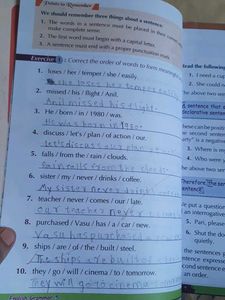 Points to Remember
We should remember three things about a sentence.
1. The words in a sentence must be placed in their
make complete sense.
2. The first word must begin with a capital letter.
3. A sentence must end with a proper punctuation
Exercise 1 : Correct the order of words to form meaningful
1. loses / her / temper / she / easily.
She loses her temper easily
2. missed / his / flight / Anil.
Anil missed his flight.
3. He / born / in / 1980 / was.
He was born in 1980.
4. discuss / let's / plan / of action / our.
let's discuss our plan of
5. falls / from / the / rain / clouds.
rain falls from the clouds
6. sister / my / never / drinks / coffee.
My sister never drinks
7. teacher / never / comes / our / late.
our teacher never comes
8. purchased / Vasu / has / a / car / new.
Vasu has purchased
9. ships / are / of / the / built / steel.
The ships are built of
10. they / go / will / cinema / to / tomorrow.
They will go to cinema tomorrow
read the following
1. I need a cup
2. She could
he above two
A sentence that
declarative sentence
These can be
or second sentence
party" is a negative
1. Where is
4. Who were
he above two sen
Therefore the
sentence
put a question
an interrogative
5. Pari, please
6. Shut the do
quietly
sentences give
sentence expresses
cond sentence e
an order.